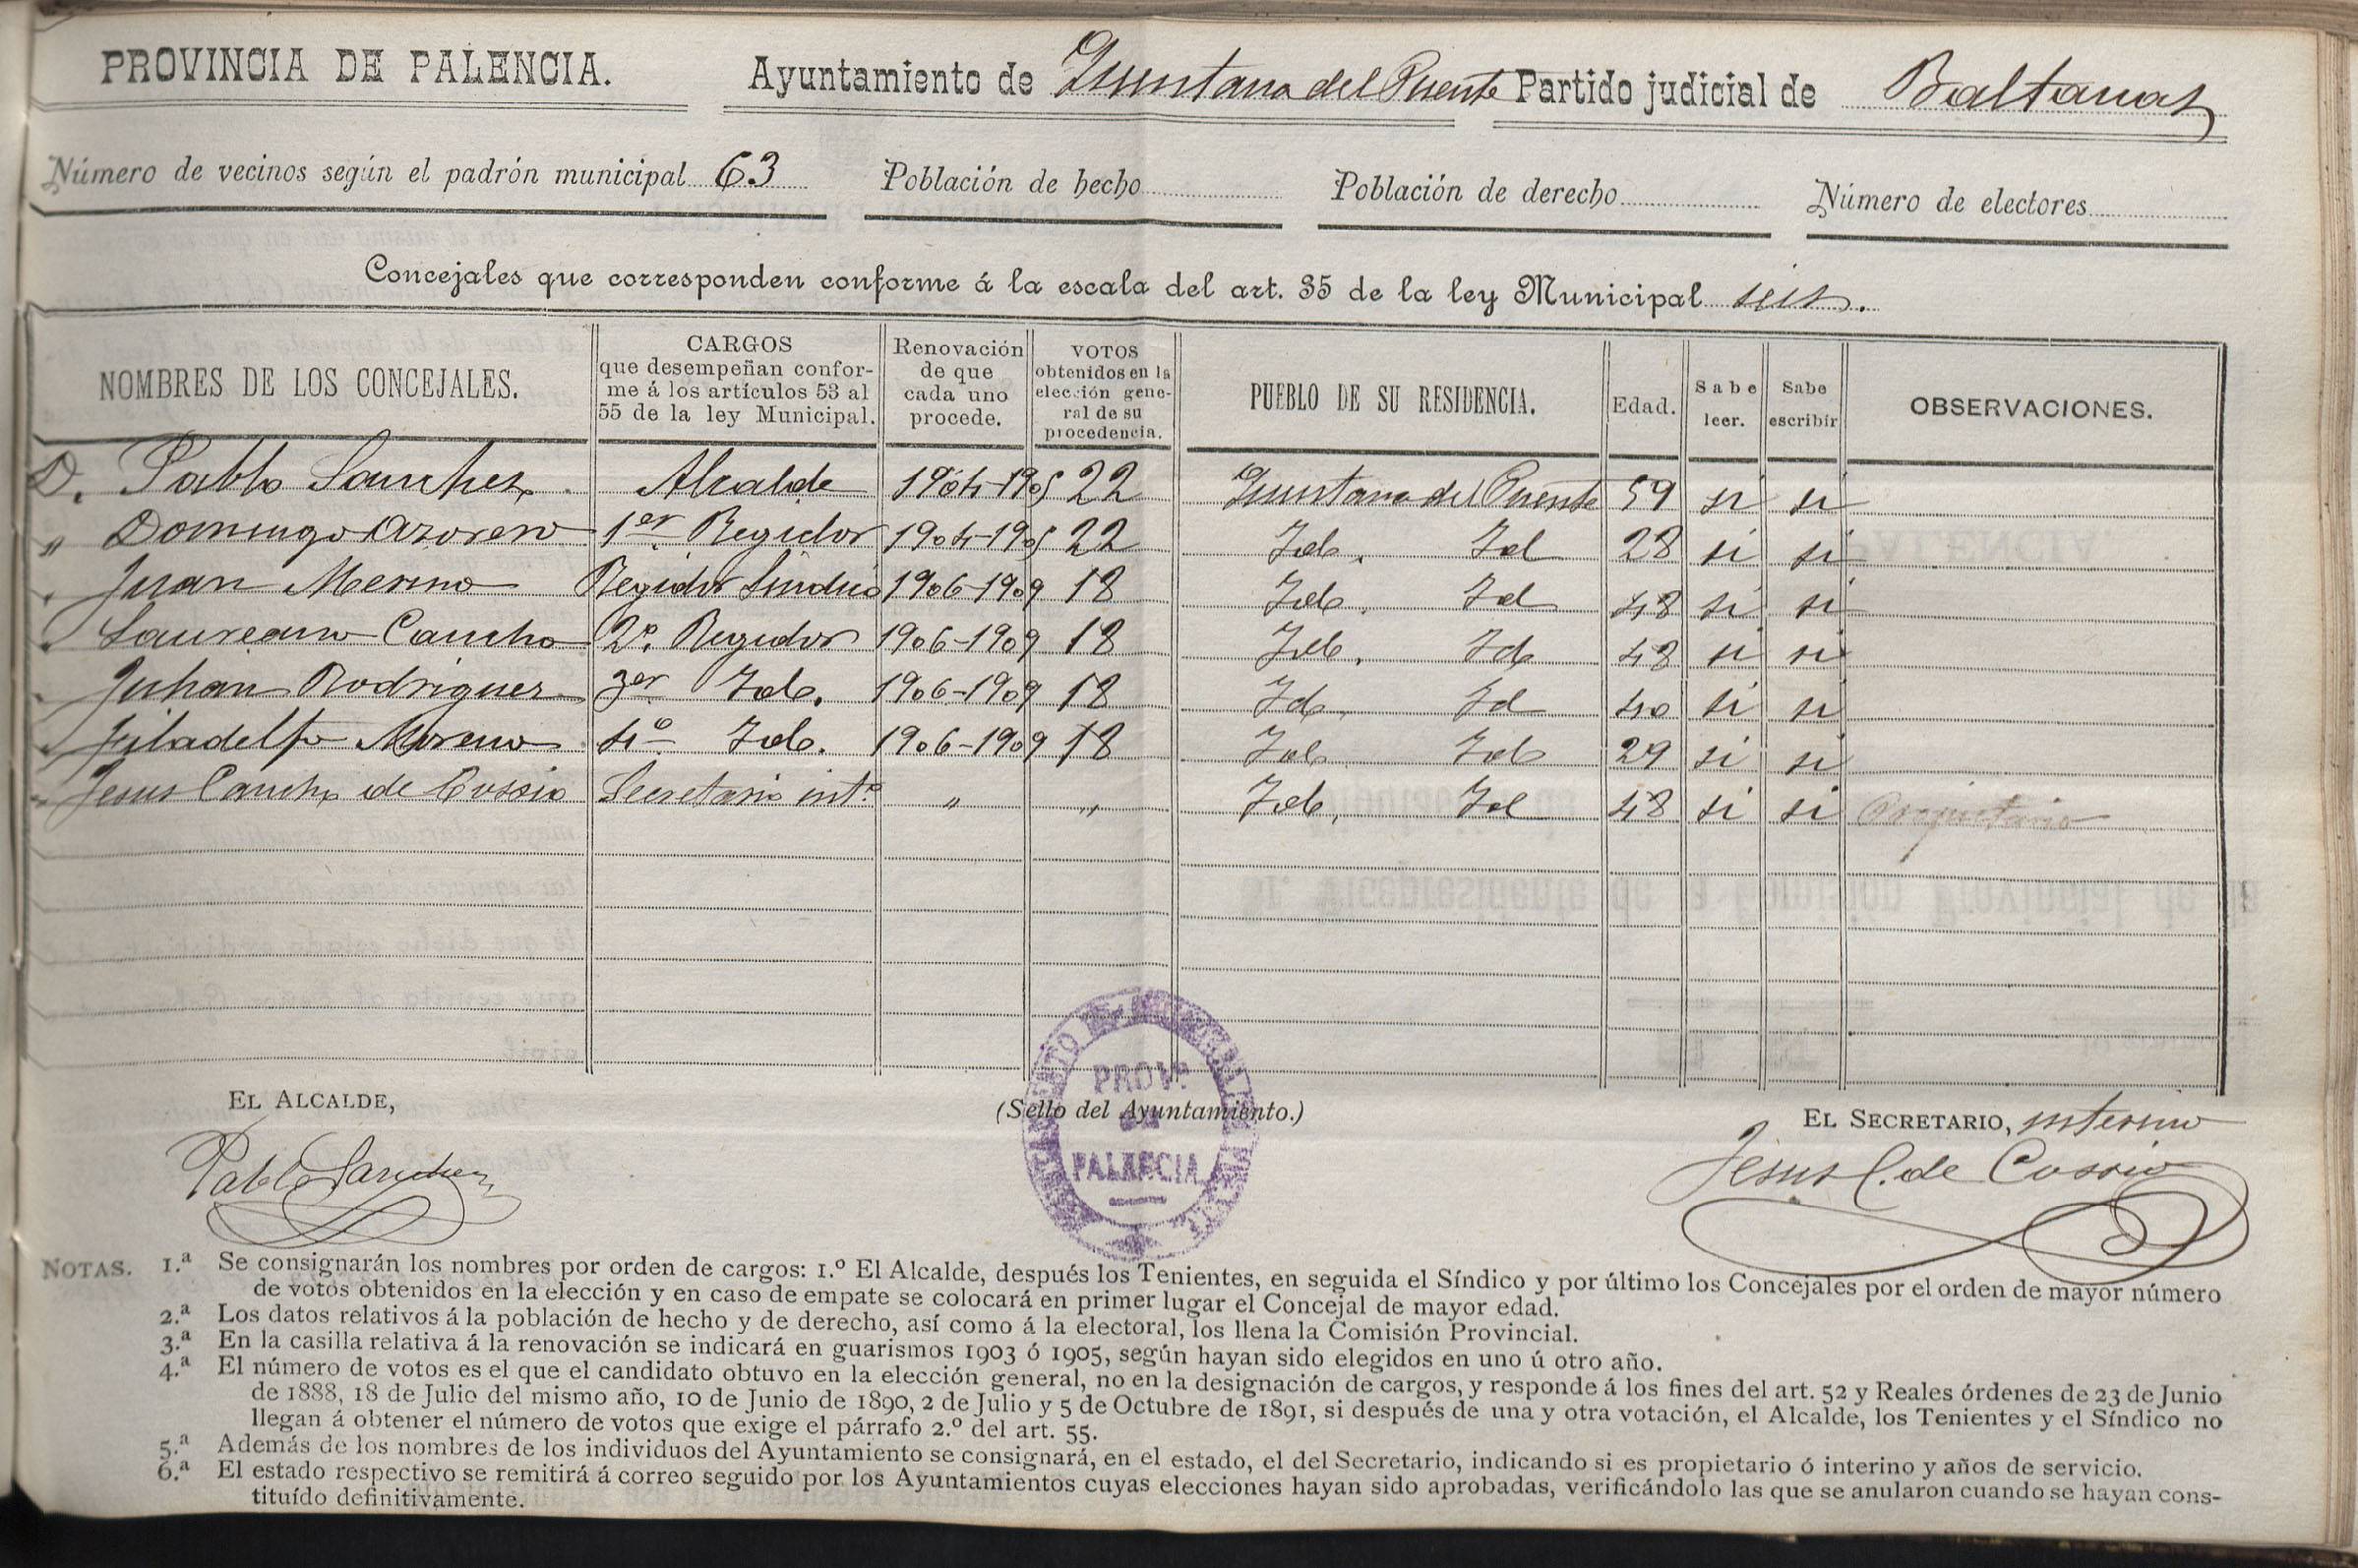 PROVINCIA DE PALENCIA. Ayuntamiento de Quintana del Puente Partido judicial de Baltanas
Número de vecinos según el padrón municipal 63 Población de hecho Población de derecho Número de electores
Concejales que corresponden conforme á la escala del art. 35 de la ley Municipal seis.
NOMBRES DE LOS CONCEJALES. CARGOS que desempeñan confor-me á los artículos 53 al 55 de la ley Municipal. Renovación de que cada uno procede. VOTOS obtenidos en la elección gene-ral de su procedencia. PUEBLO DE SU RESIDENCIA. Edad. Sabe leer. Sabe escribir OBSERVACIONES.
D. Pablo Sanchez Alcalde 1904-1905 22 Quintana del Puente 59 si si
" Domingo Azorero 1er Regidor 1904-1905 22 Id. Id 28 si si
" Juan Merino Regidor Sindico 1906-1909 18 Id. Id 48 si si
" Laureano Cancho 2º. Regidor 1906-1909 18 Id. Id 48 si si
" Julian Rodriguez 3er Id. 1906-1909 18 Id. Id 40 si si
" Filadelfo Moreno 4º Id. 1906-1909 18 Id Id 29 si si
" Jesus Cancho de Cossio Secretario int.º " " Id. Id 48 si si Propietario
EL ALCALDE, (Sello del Ayuntamiento.) EL SECRETARIO, interino
Pablo Sanchez PROV.ª DE PALENCIA Jesus C. de Cossio
NOTAS. 1.ª Se consignarán los nombres por orden de cargos: 1.º El Alcalde, después los Tenientes, en seguida el Síndico y por último los Concejales por el orden de mayor número
de votos obtenidos en la elección y en caso de empate se colocará en primer lugar el Concejal de mayor edad.
2.ª Los datos relativos á la población de hecho y de derecho, así como á la electoral, los llena la Comisión Provincial.
3.ª En la casilla relativa á la renovación se indicará en guarismos 1903 ó 1905, según hayan sido elegidos en uno ú otro año.
4.ª El número de votos es el que el candidato obtuvo en la elección general, no en la designación de cargos, y responde á los fines del art. 52 y Reales órdenes de 23 de Junio
de 1888, 18 de Julio del mismo año, 10 de Junio de 1890, 2 de Julio y 5 de Octubre de 1891, si después de una y otra votación, el Alcalde, los Tenientes y el Síndico no
llegan á obtener el número de votos que exige el párrafo 2.º del art. 55.
5.ª Además de los nombres de los individuos del Ayuntamiento se consignará, en el estado, el del Secretario, indicando si es propietario ó interino y años de servicio.
6.ª El estado respectivo se remitirá á correo seguido por los Ayuntamientos cuyas elecciones hayan sido aprobadas, verificándolo las que se anularon cuando se hayan cons-
tituído definitivamente.